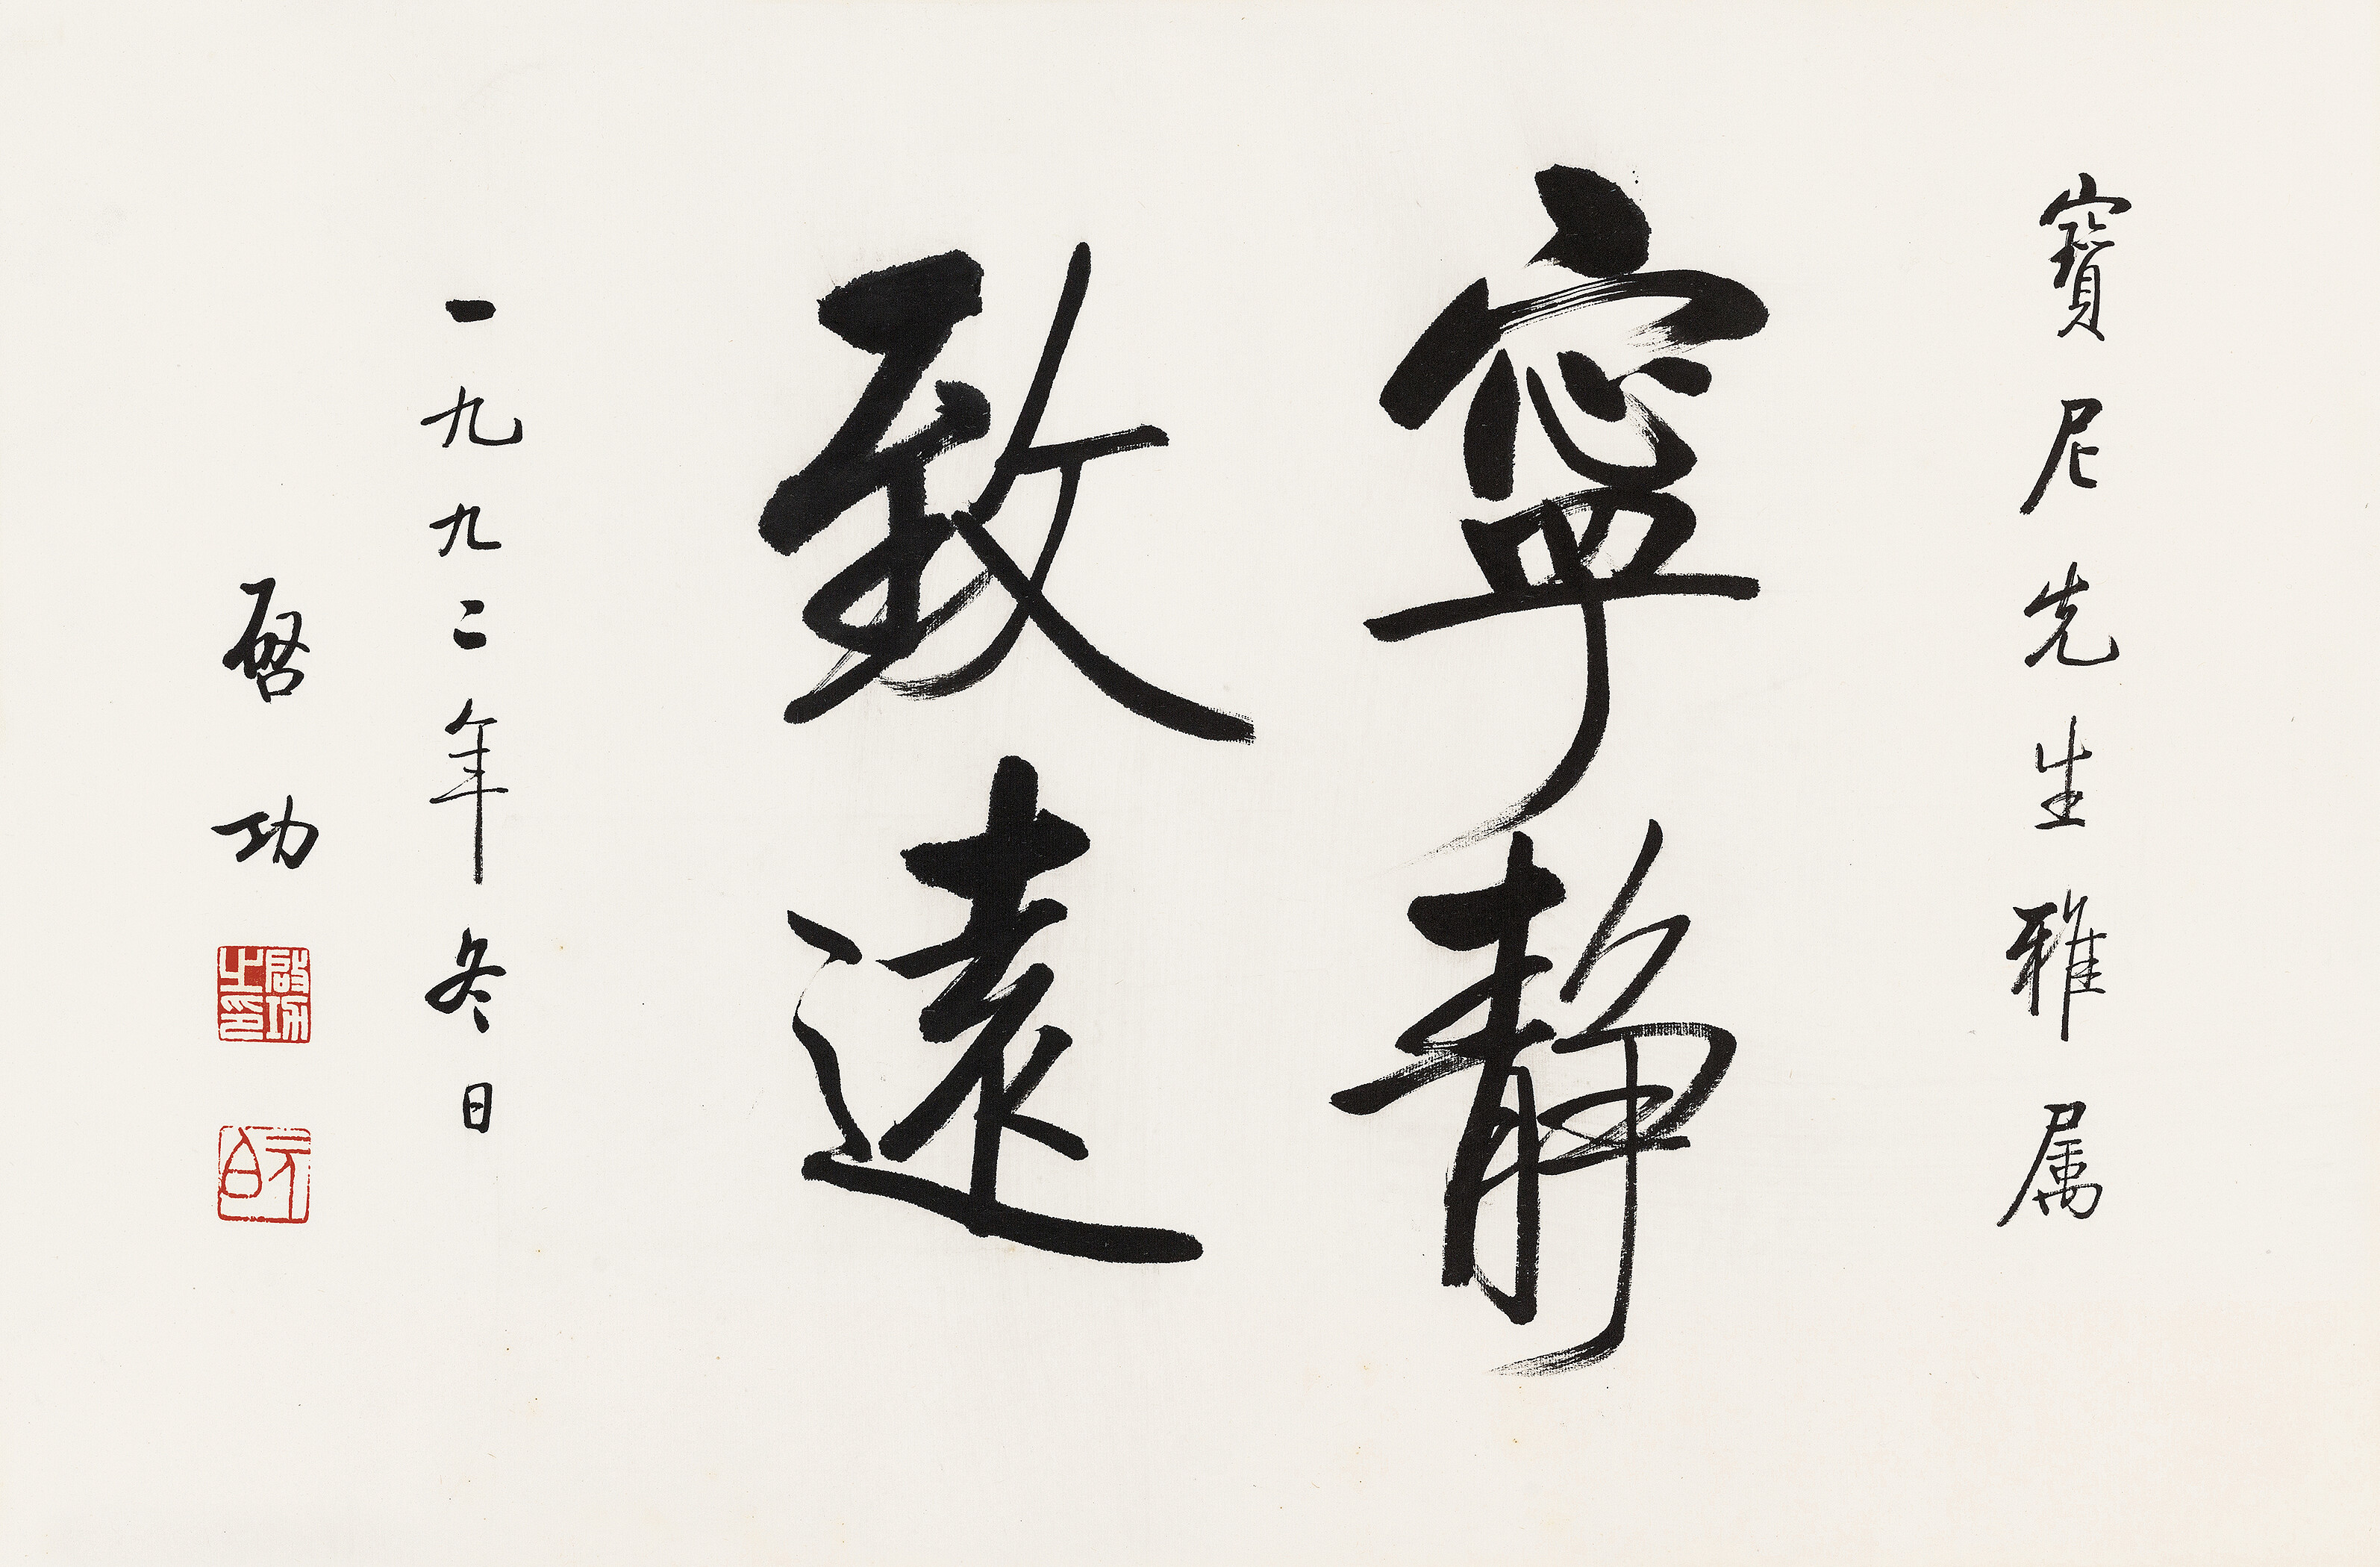 寶尼先生雅属
寧靜
致遠
一九九二年冬日
啓功
啟功之印
元白